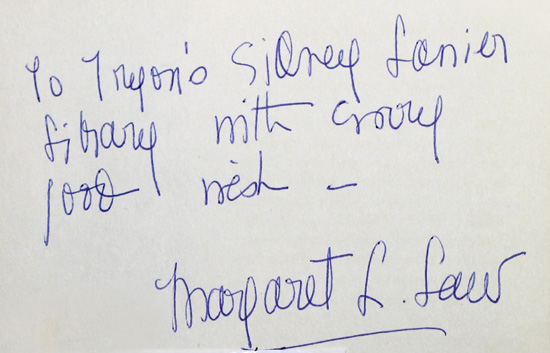 To Tryon's Sidney Lanier
Library with every
good wish –
Margaret L. Law